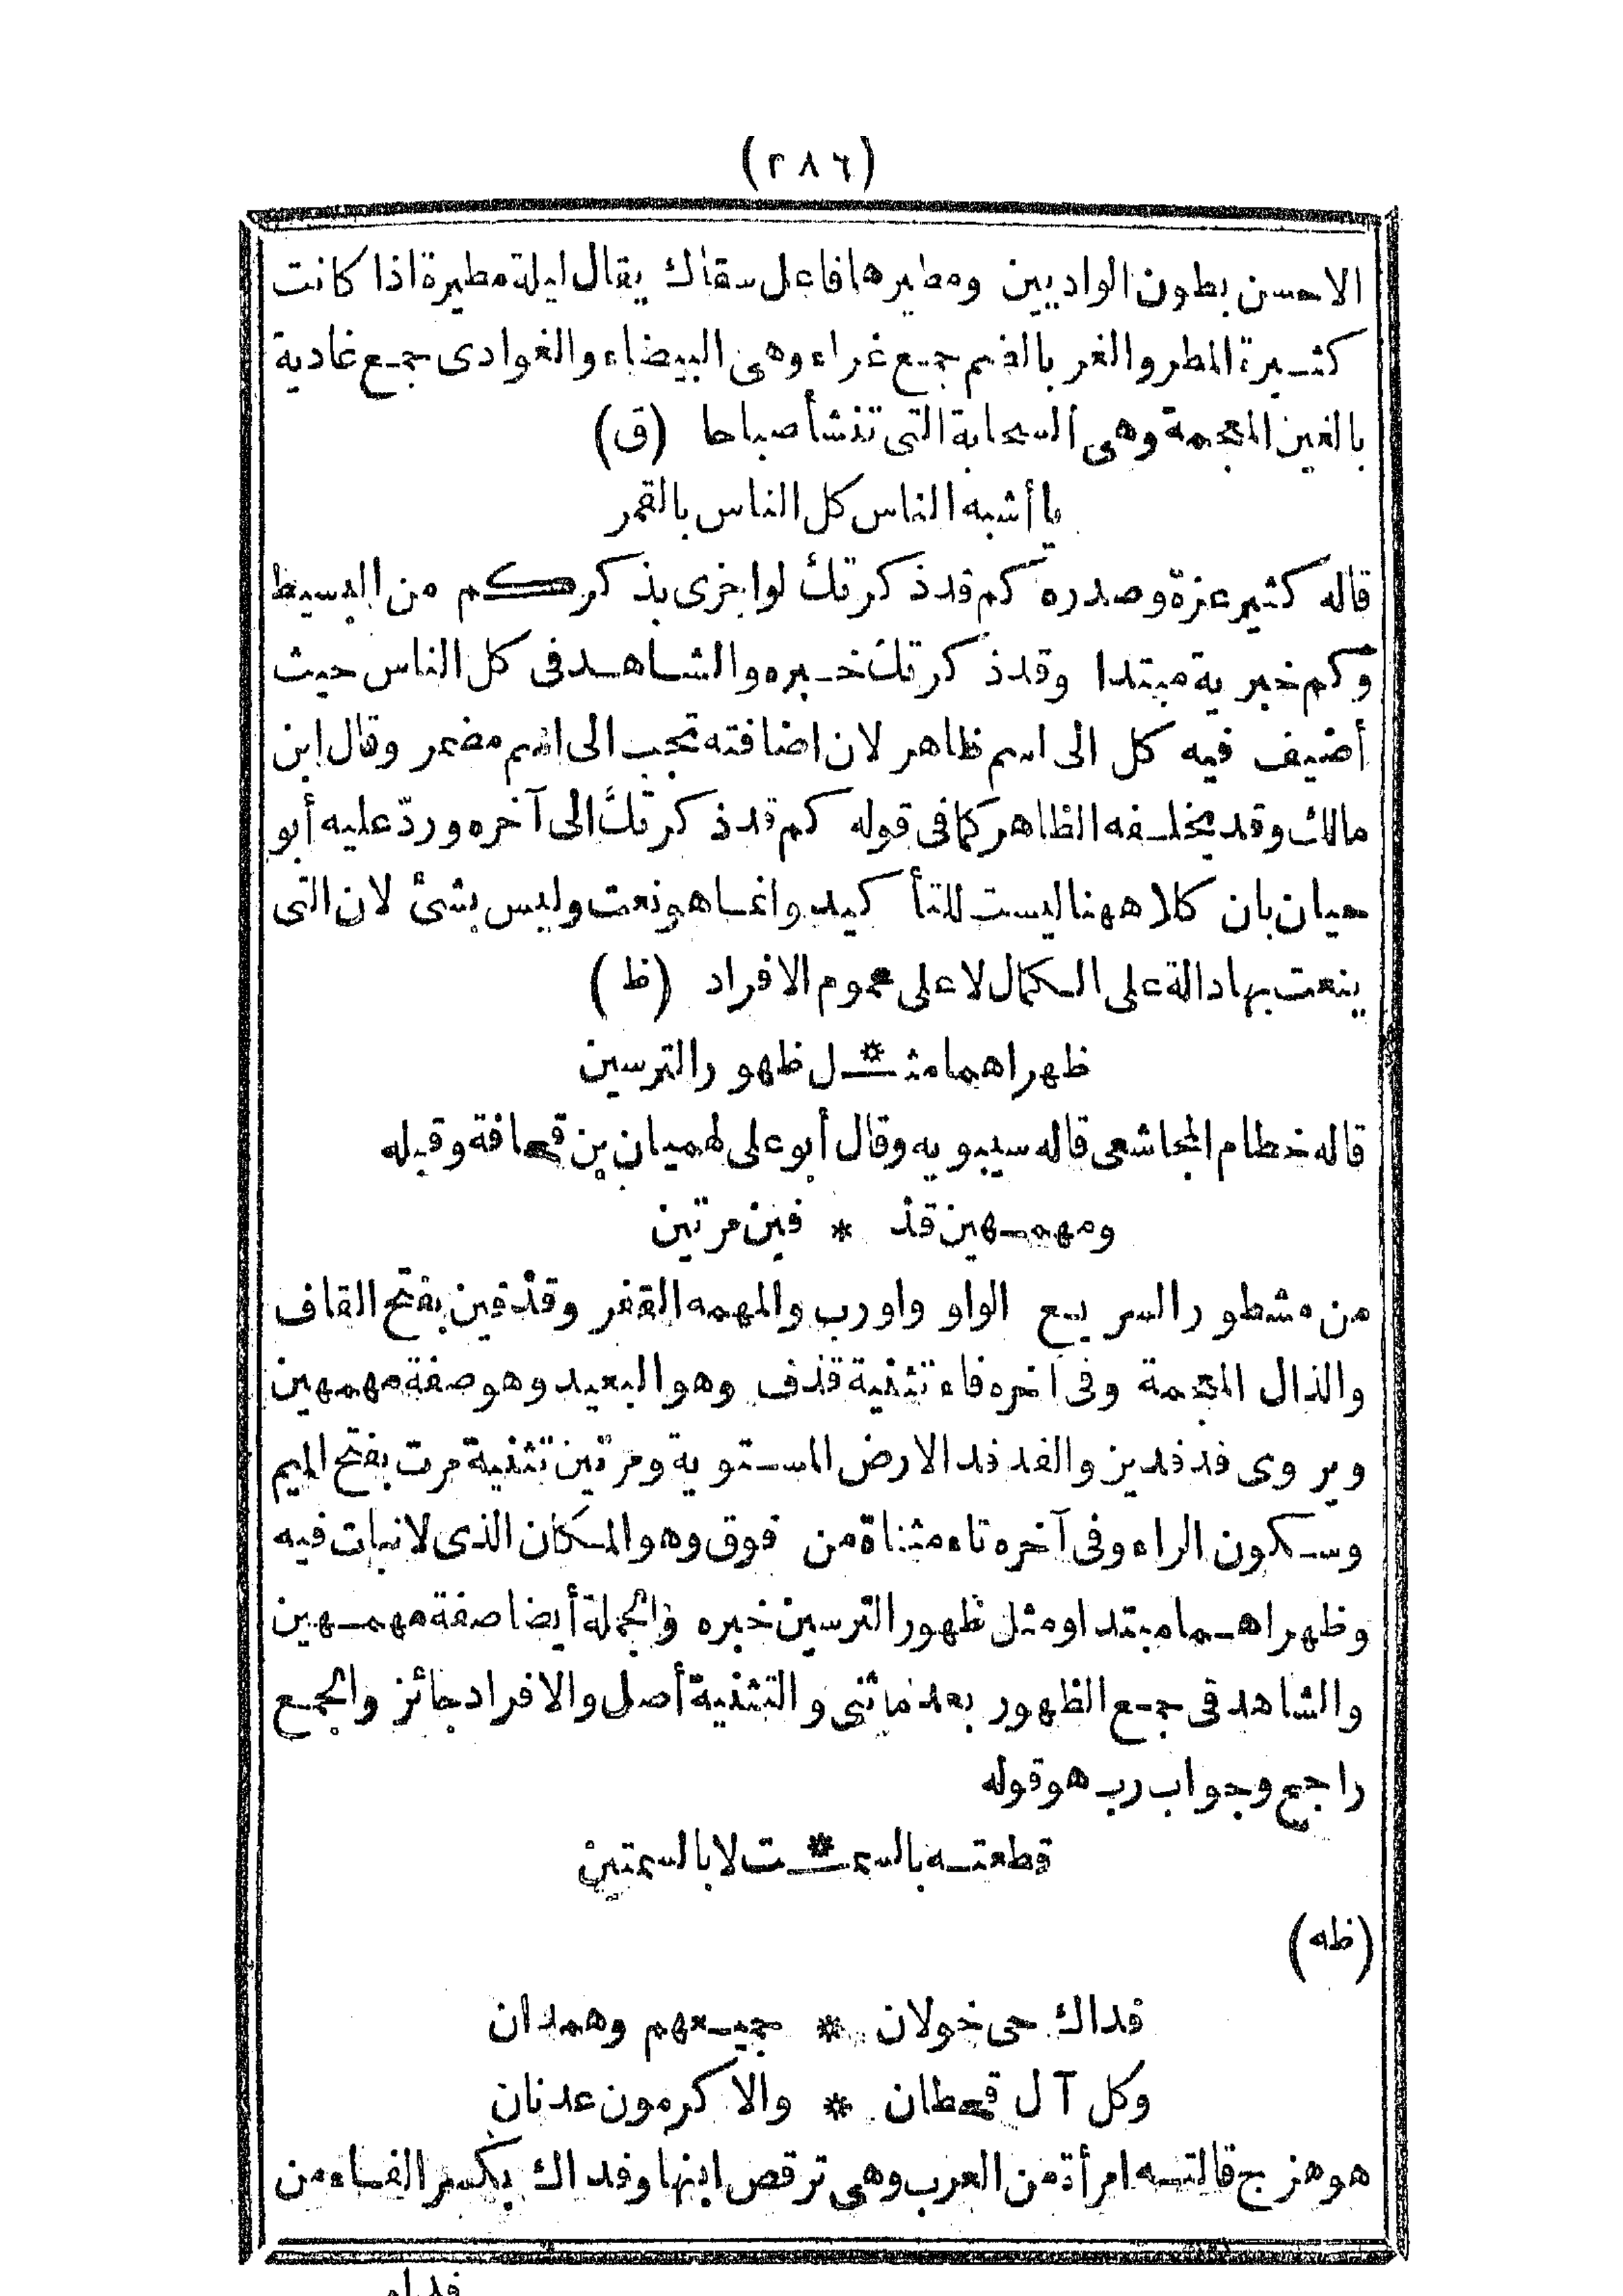 (٢٨٦)
الاحسن بطون الواديين ومطيرها فاعل سقاك يقال ليلة مطيرة اذا كانت
كثيرة المطر والغر بالضم جمع غراء وهى البيضاء والغوادى جمع غادية
بالغين المعجمة وهى السحابة التى تنشأ صباحا (ق)
يا أشبه الناس كل الناس بالقمر
قاله كثير عزة وصدره كم قد ذكرتك لو اجزى بذكركم من البسيط
وكم خبرية مبتدا وقد ذكرتك خبره والشاهد فى كل الناس حيث
أضيف فيه كل الى اسم ظاهر لان اضافته تجب الى اسم مضمر وقال ابن
مالك وقد يخلفه الظاهر كما فى قوله كم قد ذكرتك الى آخره وردّ عليه أبو
حيان بان كلا ههنا ليست للتأكيد وانما هو نعت وليس بشئ لان التى
ينعت بها دالة على الكمال لا على عموم الافراد (ظ)
ظهراهما مثـ * ـل ظهور الترسين
قاله خطام المجاشعى قاله سيبويه وقال أبو على لهميان بن قحافة وقبله
ومهمهين قذ * فين مرتين
من مشطور السريع الواو واو رب والمهمه القفر وقذفين بفتح القاف
والذال المعجمة وفى آخره فاء تثنية قذف وهو البعيد وهو صفة مهمهين
ويروى فدفدين والفدفد الارض المستوية ومرتين تثنية مرت بفتح الميم
وسكون الراء وفى آخره تاء مثناة من فوق وهو المكان الذى لا نبات فيه
وظهراهما مبتدا ومثل ظهور الترسين خبره والجملة أيضا صفة مهمهين
والشاهد فى جمع الظهور بعد ما ثنى والتثنية أصل والافراد جائز والجمع
راجح وجواب رب هو قوله
قطعته بالسمـ * ـت لا بالسمتين
(ظه)
فداك حى خولان * جميعهم وهمدان
وكل آل قحطان * والاكرمون عدنان
هو هزج قالته امرأة من العرب وهى ترقص ابنها وفداك بكسر الفاء من